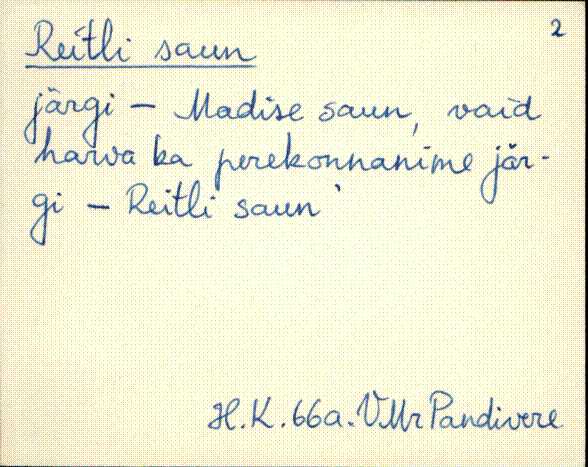 2
Reitli saun
järgi – Madise saun, vaid
harva ka perekonnanime jär-
gi – Reitli saun'
H.K. 66a. VMr Pandivere